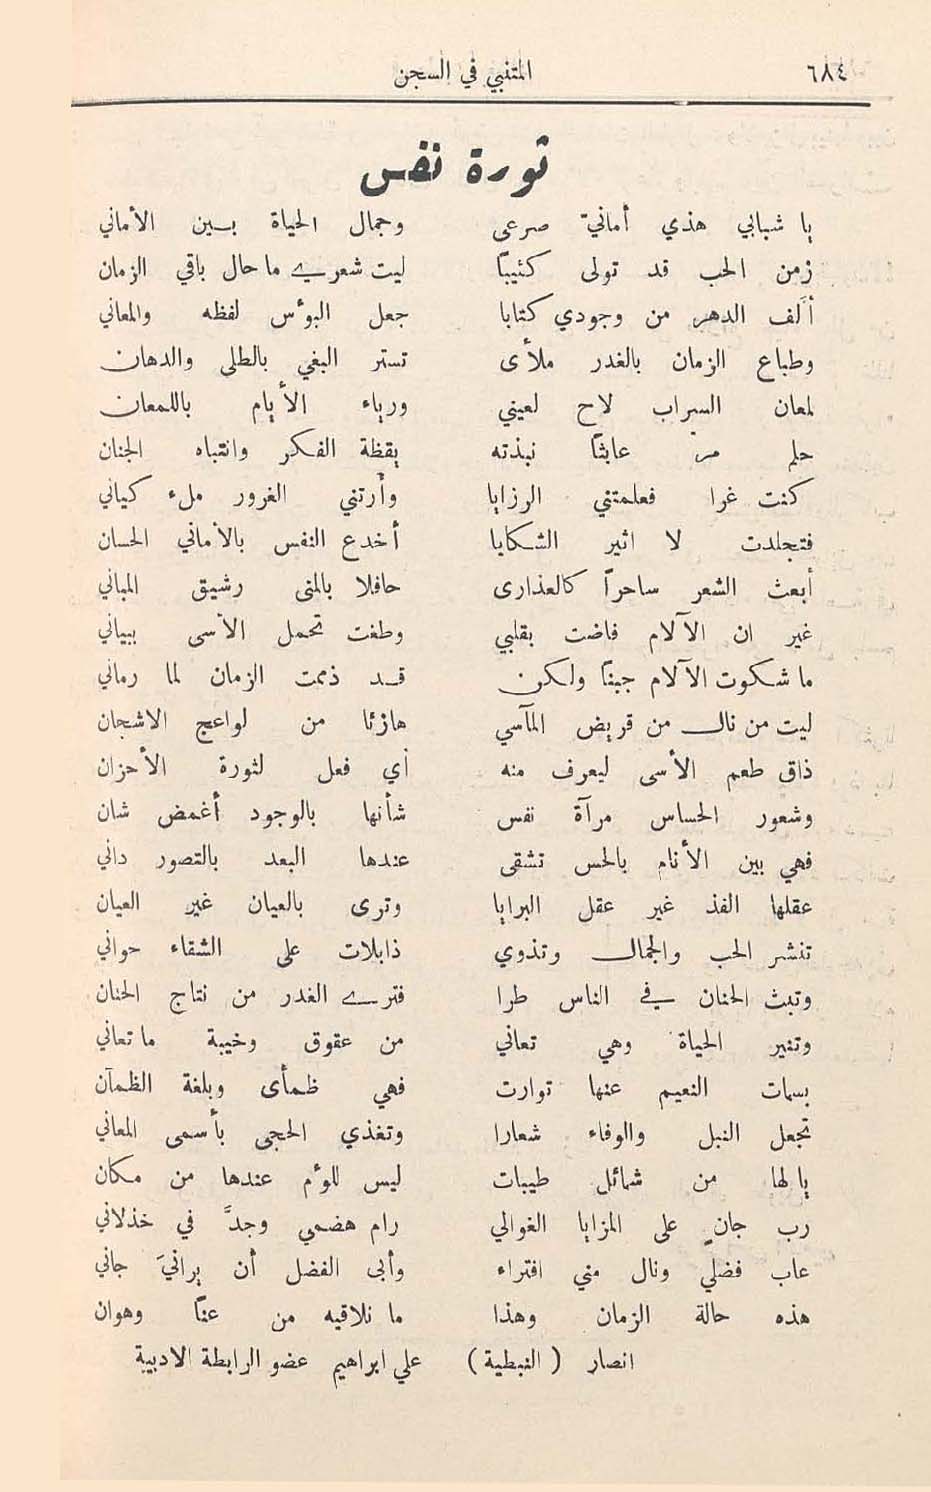 ٦٨٤ المتنبي في السجن
ثورة نفس
يا شبابي هذي أمانيّ صرعى وجمال الحياة بين الأماني
زمن الحب قد تولى كئيباً ليت شعري ما حال باقي الزمان
ألَف الدهر من وجودي كتابا جعل البؤس لفظه والمعاني
وطباع الزمان بالغدر ملأى تستر البغي بالطلى والدهان
لمعان السراب لاح لعيني ورياء الأيام باللمعان
حلم مر عابثاً نبذته يقظة الفكر وانتباه الجنان
كنت غرا فعلمتني الرزايا وأرتني الغرور ملء كياني
فتجلدت لا اثير الشكايا أخدع النفس بالأماني الحسان
أبعث الشعر ساحراً كالعذارى حافلا بالمنى رشيق المباني
غير ان الآلام فاضت بقلبي وطغت تحمل الأسى ببياني
ما شكوت الآلام جبناً ولكن قد ذممت الزمان لما رماني
ليت من نال من قريض المآسي هازئا من لواعج الاشجان
ذاق طعم الأسى ليعرف منه أي فعل لثورة الأحزان
وشعور الحساس مرآة نفس شأنها بالوجود أغمض شان
فهي بين الأنام بالحس تشقى عندها البعد بالتصور داني
عقلها الفذ غير عقل البرايا وترى بالعيان غير العيان
تنشر الحب والجمال وتذوي ذابلات على الشقاء حواني
وتبث الحنان في الناس طرا فترى الغدر من نتاج الحنان
وتنير الحياة وهي تعاني من عقوق وخيبة ما تعاني
بسمات النعيم عنها توارت فهي ظمأى وبلغة الظمآن
تجعل النبل والوفاء شعارا وتغذي الحجى بأسمى المعاني
يا لها من شمائل طيبات ليس للؤم عندها من مكان
رب جانٍ على المزايا الغوالي رام هضمي وجدَّ في خذلاني
عاب فضلي ونال مني افتراء وأبى الفضل أن يرانيَ جاني
هذه حالة الزمان وهذا ما نلاقيه من عناً وهوان
انصار ( النبطية ) علي ابراهيم عضو الرابطة الادبية